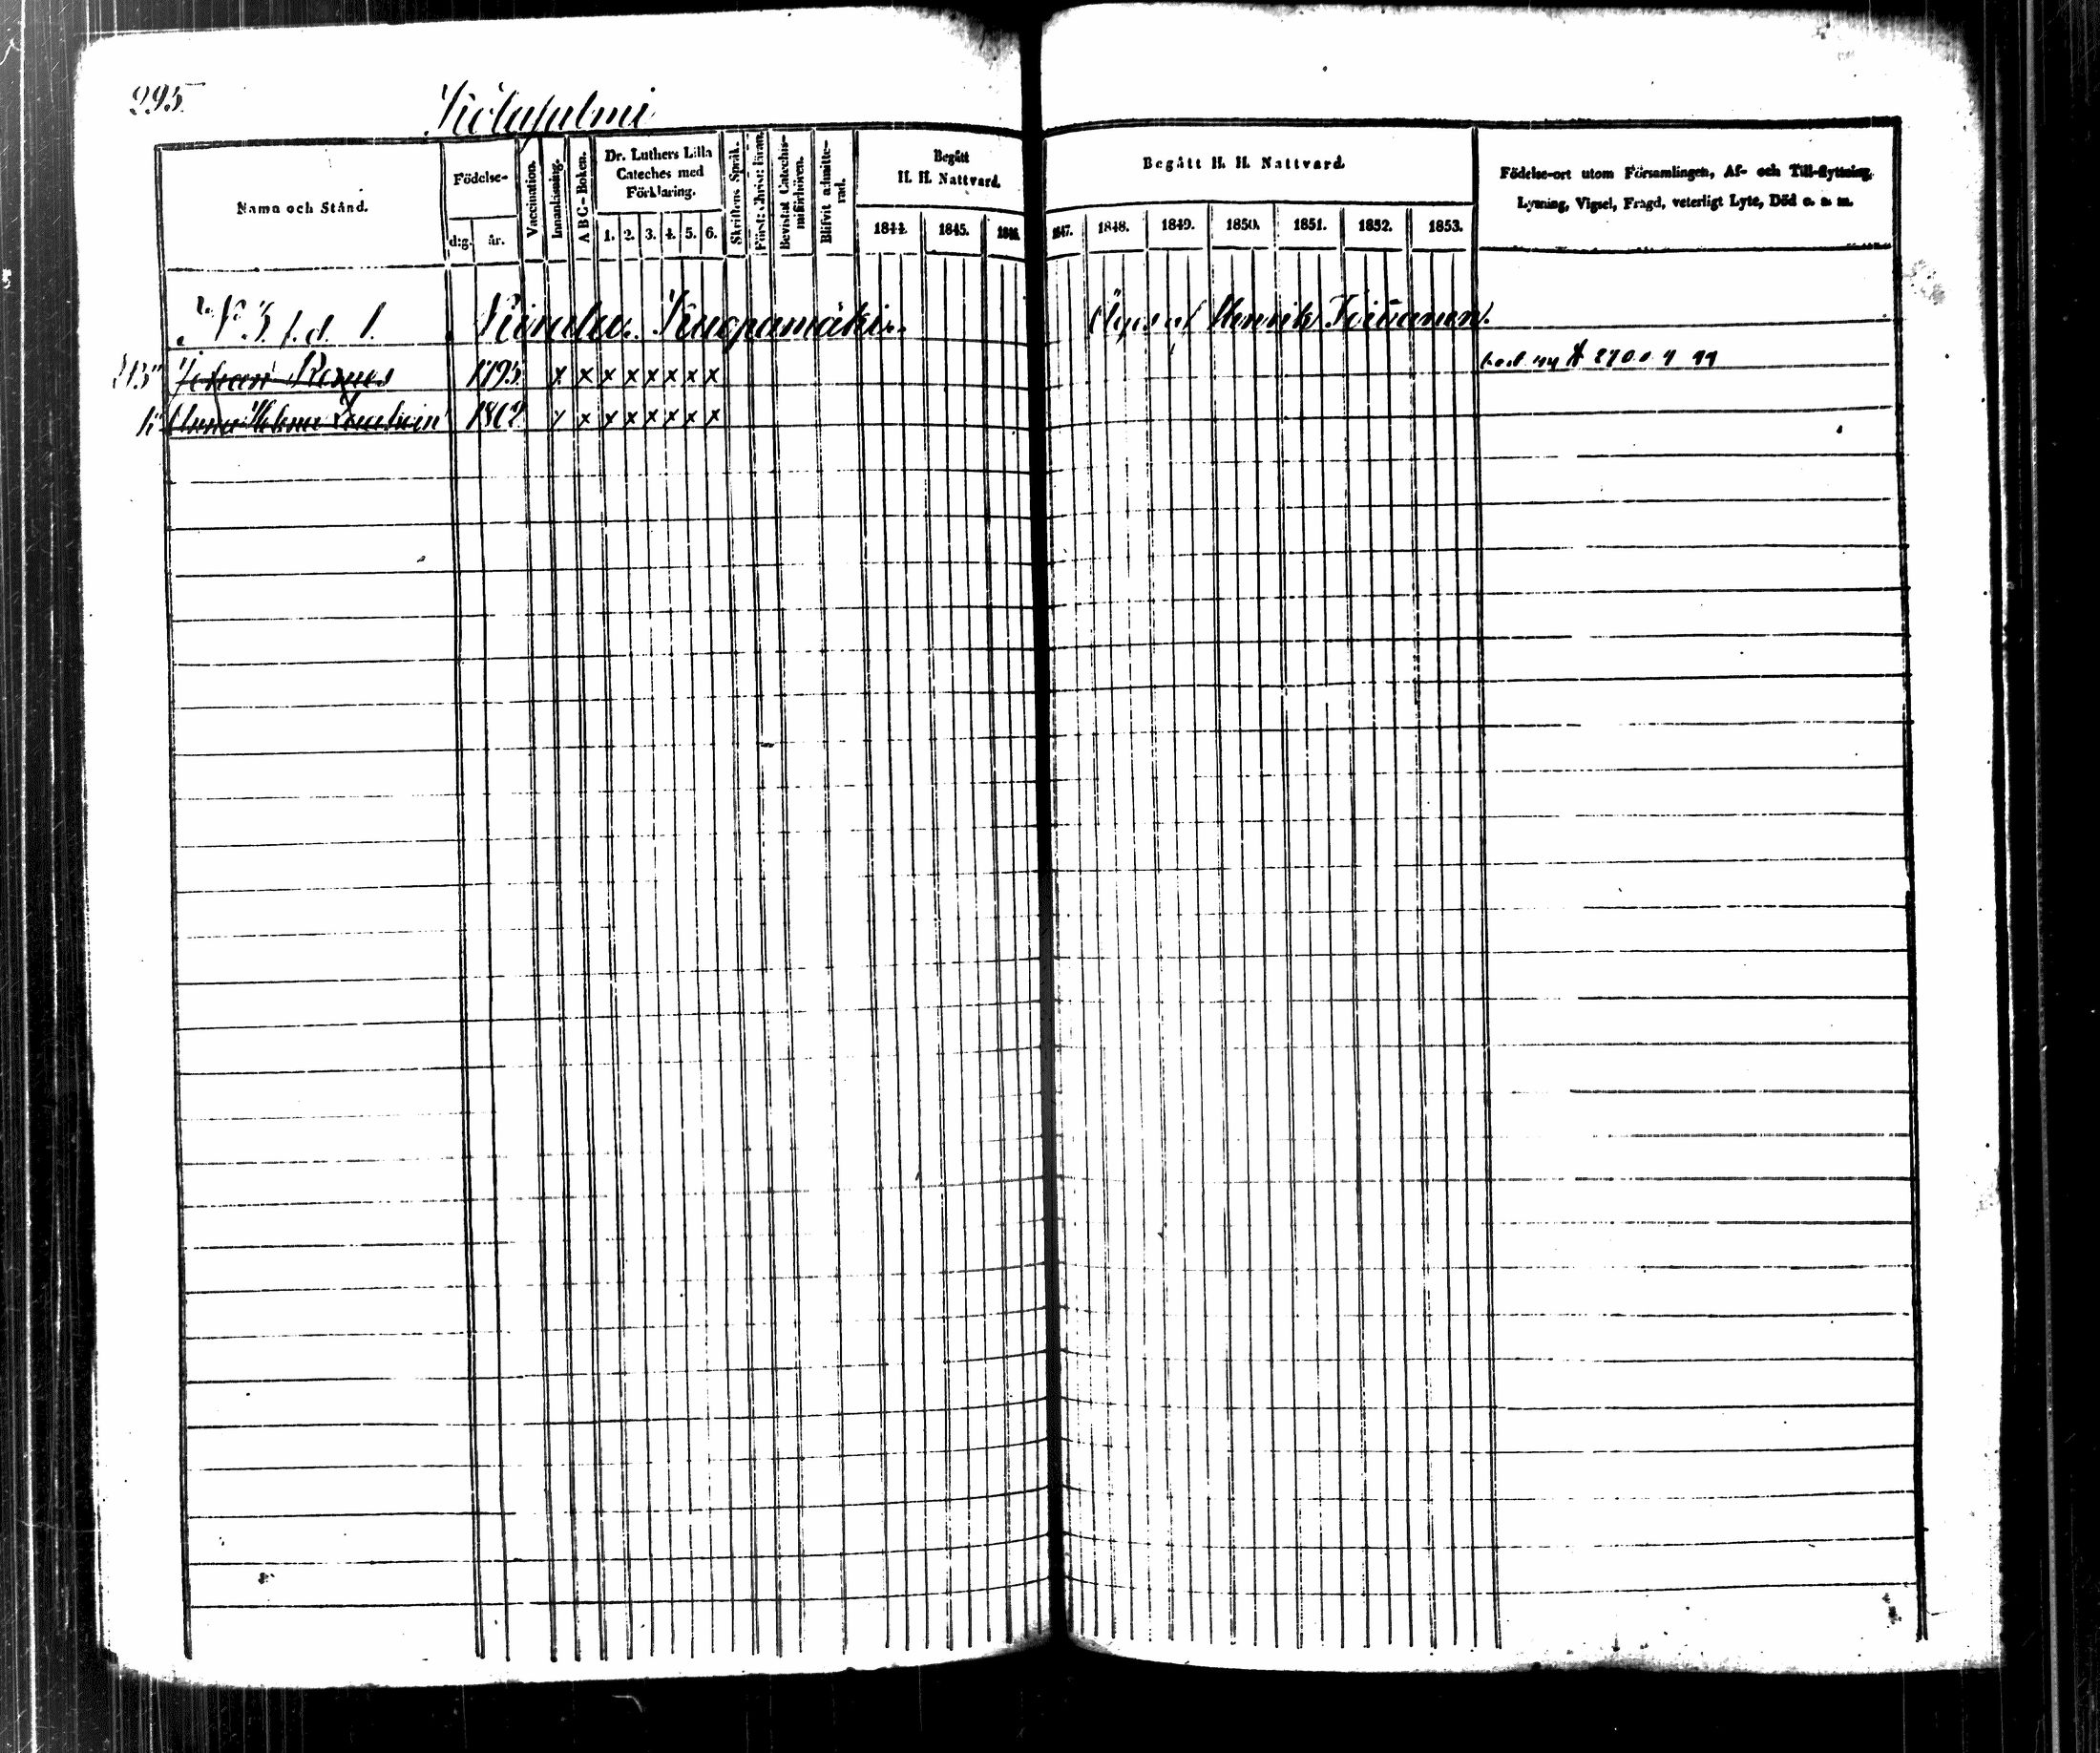 295
Namn och Stånd.
Födelse-
d:g.
år.
Vaccination.
Innanläsning.
A B C - Boken.
Dr. Luthers Lilla
Cateches med
Förklaring.
1. 2. 3. 4. 5. 6.
Skriftens Språk.
Först: Christ: läran.
Bevistat Catechis-
miförhören.
Blifvit admitte-
rad.
Begått
H. H. Nattvard.
1844. 1845. 1846.
Begått H. H. Nattvard.
1847. 1848. 1849. 1850. 1851. 1852. 1853.
Födelse-ort utom Församlingen, Af- och Till-flyttning,
Lysning, Vigsel, Frägd, veterligt Lyte, Död o. s. m.
No 3 f. d. 1. Kuopamäki Henrik
Johan 1795 x x x x x x x x
Anna Helena 1802 x x x x x x x x